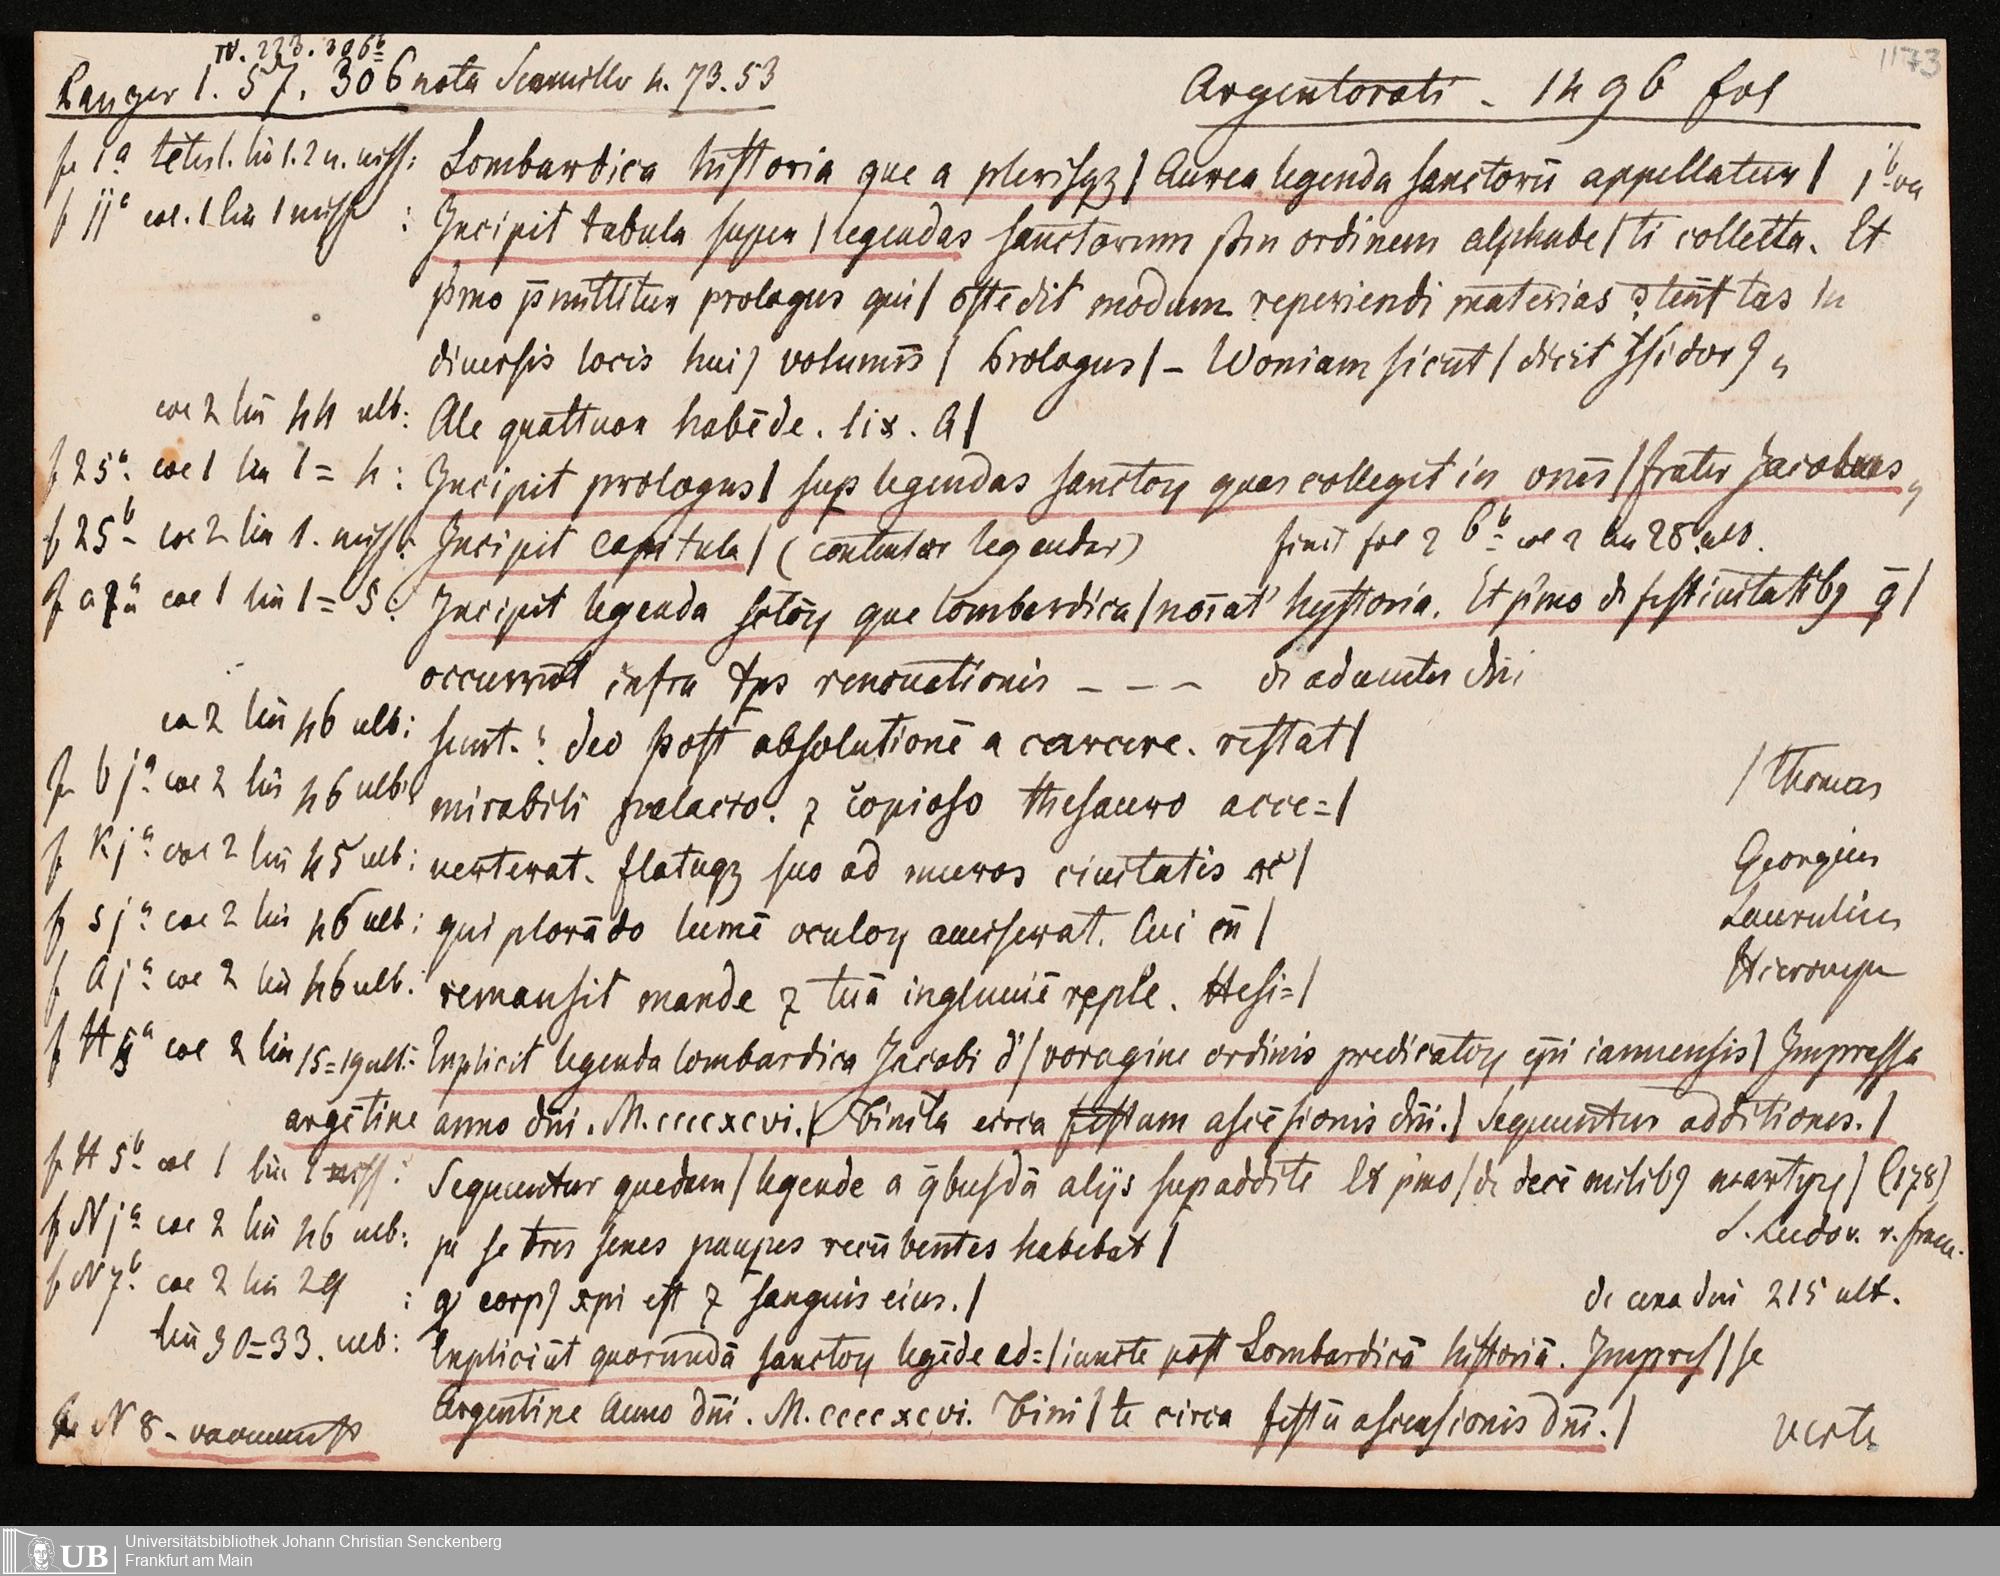 IV. 223. 306b
Panzer I. 57. 306 nota Seemiller 4. 73. 53
Argentorati - 1496 fol
1173
f 1a lin 1. 2 u. miss: Lombardica historia que a plerisqz | Aurea legenda sanctorū appellatur | 1b va
f jja col. 1 lin 1 miss : Incipit tabula super | legendas sanctorum ordinem alphabe | ti collecta. Et
pmo p̄mittitur prologus qui | ostēdit modum reperiendi materias in
diuersis locis hui9 volumīs | Prologus | - Woniam sicut | dicit Isidor9
col 2 lin 44 ulb: Ale quattuor habēde. lix. A |
f 25a col 1 lin 1 = 4 : Incipit prologus | sup legendas sanctoꝝ quas collegit in | frater Jacobus
f 25b col 2 lin 1. miss: Incipit capitula | ( legendar) finit fol 26b col 2 lin 28. ulb.
col 1 lin 1 = 5 : Incipit legenda sctōꝝ que lombardica | noīat' hystoria. Et p'mo d festiuitatib9 q̄ |
occurrūt infra tps renouationis - - - de aduentu dni
col 2 lin 46 ulb: deo post absolutionē a carcere. restat |
f bja col 2 lin 46 ulb: mirabili palacio. ⁊ copioso thesauro acce= | | Thomas
f kja col 2 lin 45 ulb: uerterat. flatuqz suo ad muros ciuitatis | Georgius
f sja col 2 lin 46 ulb: qui plorādo lumē oculoꝝ amiserat. Cui | Laurentius
f Aja col 2 lin 46 ulb: remansit mande ⁊ tuā ingluuiē reple. Hesi= | Hieronym
f H 5a col 2 lin 15=19 ulb: Explicit legenda lombardica Jacobi d' | voragine ordinis predicatoꝝ ep̄i ianuensis | Impressa
argētine anno dn̄i. M. ccccxcvi. | Finita circa festum ascēsionis dn̄i. | Sequuntur additiones. |
f H 5b col 1 lin 1 miss: Sequuntur quedam | legende a q̄busdā alijs supaddite Et p'mo | de decē milib9 martyrꝝ | (178)
f Nja col 2 lin 46 ulb: se tres senes paupes recūbentes habebat | S. Ludov. r. franc.
f N7b col 2 lin 29 : corp9 xpi est ⁊ sanguis eius. | de cena dni 215 ulb.
lin 30=33. ulb: Expliciūt quorundā sanctoꝝ legēde ad= | iuncte post Lombardicā historiā. Impres | se
Argentine Anno dn̄i. M. ccccxcvi. Fini | te circa festū ascensionis dn̄i. | verte
f N 8 - vacuum
UB
Universitätsbibliothek Johann Christian Senckenberg
Frankfurt am Main